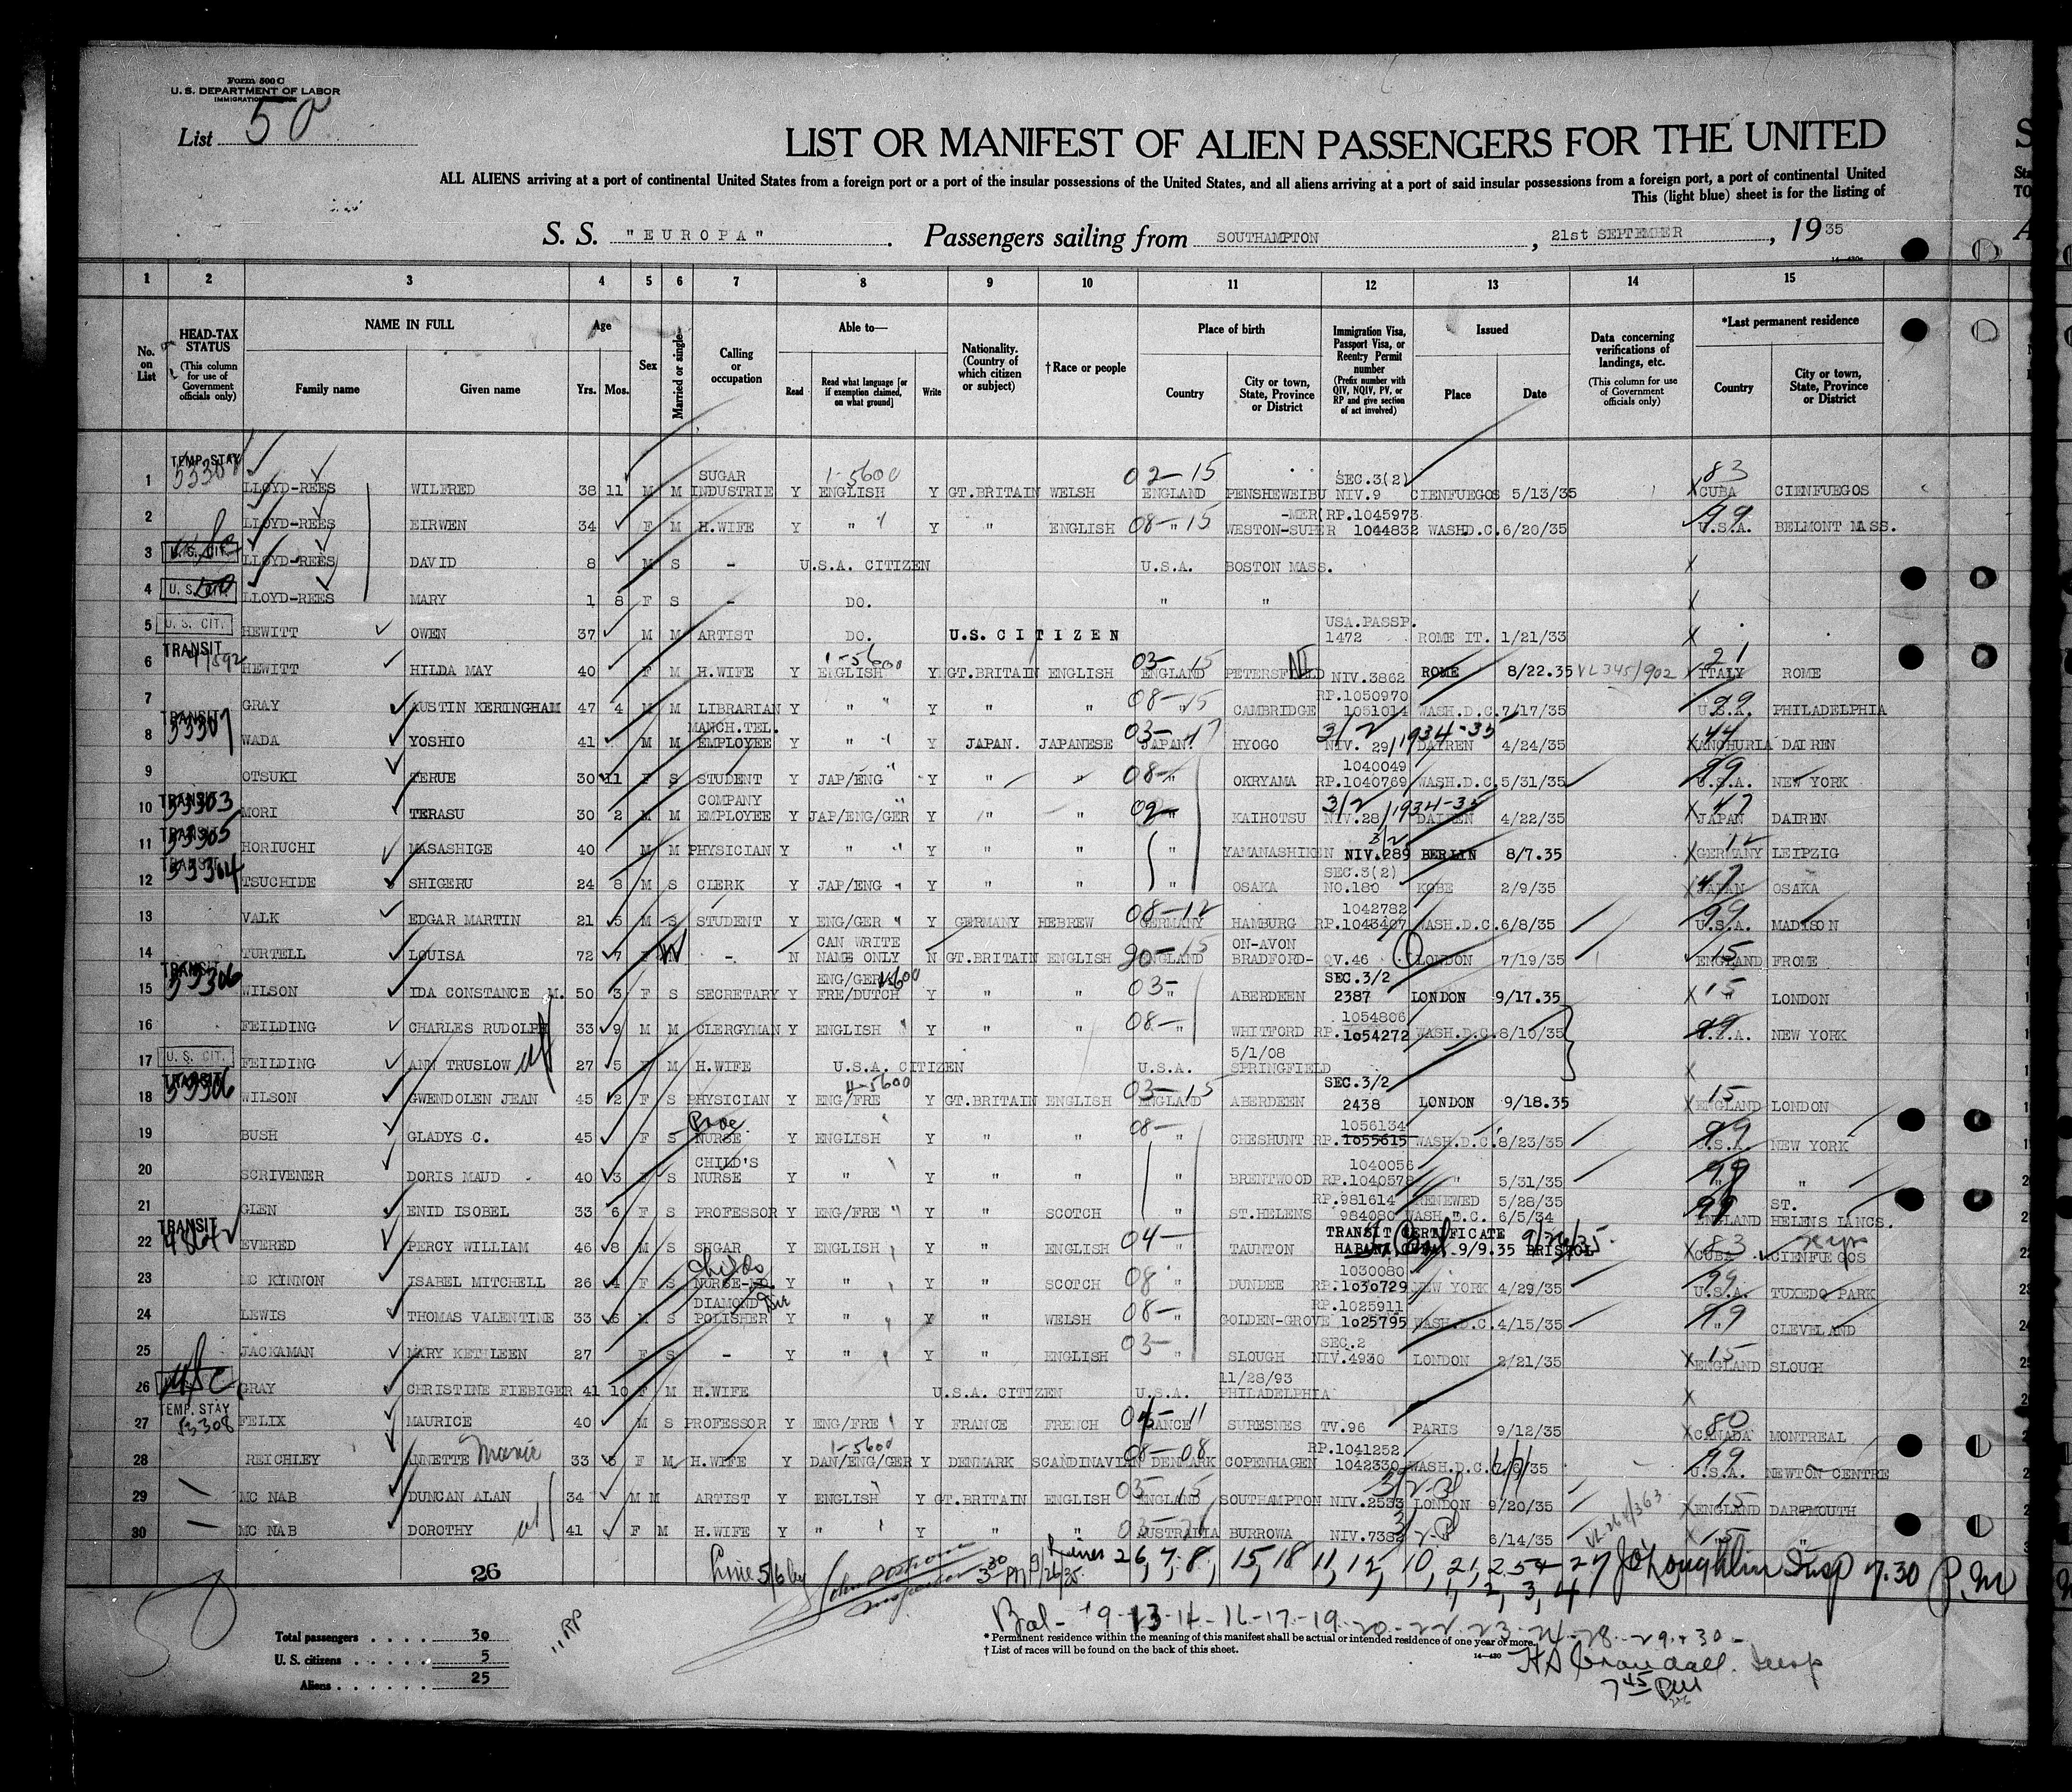 Form 500 C
U. S. DEPARTMENT OF LABOR
List 50
LIST OR MANIFEST OF ALIEN PASSENGERS FOR THE UNITED
ALL ALIENS arriving at a port of continental United States from a foreign port or a port of the insular possessions of the United States, and all aliens arriving at a port of said insular possessions from a foreign port, a port of continental United
This (light blue) sheet is for the listing of
S. S. "EUROPA" . Passengers sailing from SOUTHAMPTON , 21st SEPTEMBER , 1935
1 2 3 4 5 6 7 8 9 10 11 12 13 14 15
No. on List
HEAD-TAX STATUS (This column for use of Government officials only)
NAME IN FULL Family name Given name
Age Yrs. Mos.
Sex
Married or single
Calling or occupation
Able to— Read Read what language [or if exemption claimed, on what ground] Write
Nationality. (Country of which citizen or subject)
†Race or people
Place of birth Country City or town, State, Province or District
Immigration Visa, Passport Visa, or Reentry Permit number (Prefix number with QIV, NQIV, PV, or RP and give section of act involved)
Issued Place Date
Data concerning verifications of landings, etc. (This column for use of Government officials only)
*Last permanent residence Country City or town, State, Province or District
1 TEMP. STAY LLOYD-REES WILFRED 38 11 M M SUGAR INDUSTRIE Y ENGLISH 1-5600 Y GT.BRITAIN WELSH 02-15 ENGLAND PENSHEWEIBU SEC.3(2) NIV.9 CIENFUEGOS 5/13/35 83 CUBA CIENFUEGOS
2 LLOYD-REES EIRWEN 34 F M H.WIFE Y " Y " ENGLISH 08-15 " -MER( WESTON-SUPER RP.1045973 1044832 WASH.D.C. 6/20/35 99 U.S.A. BELMONT MASS.
3 U.S. CIT. LLOYD-REES DAVID 8 M S - U.S.A. CITIZEN U.S.A. BOSTON MASS.
4 U.S. CIT. LLOYD-REES MARY 1 8 F S - DO. " "
5 U. S. CIT. HEWITT OWEN 37 M M ARTIST DO. U.S. CITIZEN USA.PASSP. 1472 ROME IT. 1/21/33
6 TRANSIT HEWITT HILDA MAY 40 F M H.WIFE Y ENGLISH 1-5600 Y GT.BRITAIN ENGLISH 03-15 ENGLAND PETERSFIELD NIV.3862 ROME 8/22.35 VL345/902 21 ITALY ROME
7 GRAY AUSTIN KERINGHAM 47 4 M M LIBRARIAN Y " Y " " 08-15 " CAMBRIDGE RP.1050970 1051014 WASH.D.C. 7/17/35 99 U.S.A. PHILADELPHIA
8 TRANSIT 53307 WADA YOSHIO 41 M M MANCH.TEL. EMPLOYEE Y " Y JAPAN. JAPANESE 03-47 JAPAN. HYOGO 3/2 NIV. 29/1934-35 DAIREN 4/24/35 44 MANCHURIA DAIREN
9 OTSUKI TERUE 30 11 F S STUDENT Y JAP/ENG Y " " 08- " OKRYAMA 1040049 RP.1040769 WASH.D.C. 5/31/35 99 U.S.A. NEW YORK
10 TRANSIT 53303 MORI TERASU 30 2 M M COMPANY EMPLOYEE Y JAP/ENG/GER Y " " 02- " KAIHOTSU 3/2 NIV.28/1934-35 DAIREN 4/22/35 47 JAPAN DAIREN
11 TRANSIT 53305 HORIUCHI MASASHIGE 40 M M PHYSICIAN Y " Y " " " YAMANASHIKEN 3/2 NIV.289 BERLIN 8/7.35 12 GERMANY LEIPZIG
12 TRANSIT 53304 TSUCHIDE SHIGERU 24 8 M S CLERK Y JAP/ENG Y " " " OSAKA SEC.3(2) NO.180 KOBE 2/9/35 47 JAPAN OSAKA
13 VALK EDGAR MARTIN 21 5 M S STUDENT Y ENG/GER Y GERMANY HEBREW 08-12 GERMANY HAMBURG 1042782 RP.1043407 WASH.D.C. 6/8/35 99 U.S.A. MADISON
14 TURTELL LOUISA 72 7 W - N CAN WRITE NAME ONLY N GT.BRITAIN ENGLISH 20-15 ENGLAND ON-AVON BRADFORD- QV.46 LONDON 7/19/35 15 ENGLAND FROME
15 TRANSIT 53306 WILSON IDA CONSTANCE M. 50 3 F S SECRETARY Y ENG/GER FRE/DUTCH Y " " 03- " ABERDEEN SEC.3/2 2387 LONDON 9/17.35 15 " LONDON
16 FEILDING CHARLES RUDOLPH 33 9 M M CLERGYMAN Y ENGLISH Y " " 08- " WHITFORD 1054806 RP.1054272 WASH.D.C. 8/10/35 99 U.S.A. NEW YORK
17 U. S. CIT. FEILDING ANN TRUSLOW 27 5 F M H.WIFE U.S.A. CITIZEN U.S.A. 5/1/08 SPRINGFIELD
18 TRANSIT 53306 WILSON GWENDOLEN JEAN 45 2 F S PHYSICIAN Y ENG/FRE Y GT.BRITAIN ENGLISH 03-15 ENGLAND ABERDEEN SEC.3/2 2438 LONDON 9/18.35 15 ENGLAND LONDON
19 BUSH GLADYS C. 45 F S NURSE Y ENGLISH Y " " 08- " CHESHUNT 1056134 RP.1055615 WASH.D.C. 8/23/35 99 U.S.A. NEW YORK
20 SCRIVENER DORIS MAUD 40 3 F S CHILD'S NURSE Y " Y " " " BRENTWOOD 1040056 RP.1040578 " 5/31/35 99 " "
21 GLEN ENID ISOBEL 33 6 F S PROFESSOR Y ENG/FRE Y " SCOTCH " ST.HELENS RP.981614 984080 RENEWED WASH.D.C. 5/28/35 6/5/34 99 ENGLAND ST. HELENS LANCS.
22 TRANSIT EVERED PERCY WILLIAM 46 8 M S SUGAR Y ENGLISH Y " ENGLISH 04- " TAUNTON TRANSIT CERTIFICATE HABANA CUBA. 9/9.35 BRISTOL 83 CUBA CIENFUEGOS
23 MC KINNON ISABEL MITCHELL 26 4 F S Childs NURSE Y " Y " SCOTCH 08 " DUNDEE 1030080 RP.1030729 NEW YORK 4/29/35 99 U.S.A. TUXEDO PARK
24 LEWIS THOMAS VALENTINE 33 6 M S DIAMOND POLISHER Y " Y " WELSH 08- " GOLDEN-GROVE RP.1025911 1025795 WASH.D.C. 4/15/35 99 " CLEVELAND
25 JACKAMAN MARY KETHLEEN 27 F S - Y " Y " ENGLISH 03- " SLOUGH SEC.2 NIV.4930 LONDON 2/21/35 15 ENGLAND SLOUGH
26 USC GRAY CHRISTINE FIEBIGER 41 10 F M H.WIFE U.S.A. CITIZEN U.S.A. 11/28/93 PHILADELPHIA
27 TEMP. STAY 53308 FELIX MAURICE 40 M S PROFESSOR Y ENG/FRE Y FRANCE FRENCH 04-11 FRANCE SURESNES TV.96 PARIS 9/12/35 80 CANADA MONTREAL
28 REICHLEY ANNETTE Marie 33 F M H.WIFE Y 1-5600 DAN/ENG/GER Y DENMARK SCANDINAVIAN 08-08 DENMARK COPENHAGEN RP.1041252 1042330 WASH.D.C. 99 U.S.A. NEWTON CENTRE
29 MC NAB DUNCAN ALAN 34 M M ARTIST Y ENGLISH Y GT.BRITAIN ENGLISH 03-15 ENGLAND SOUTHAMPTON NIV.2533 LONDON 9/20/35 15 ENGLAND DARTMOUTH
30 MC NAB DOROTHY 41 F M H.WIFE Y " Y " " AUSTRALIA BURROWA NIV.7382 6/14/35 15 "
26 Lines 26, 7, 8, 15, 18 11, 12, 10, 21, 25 27 Insp 7.30 P.M
1, 2, 3, 4
Bal- 9-13-14-16-17-19-20-22-23-24-28-29+30-
Total passengers 30
U. S. citizens 5
Aliens 25
* Permanent residence within the meaning of this manifest shall be actual or intended residence of one year or more.
† List of races will be found on the back of this sheet.
14—430
7 45 PM